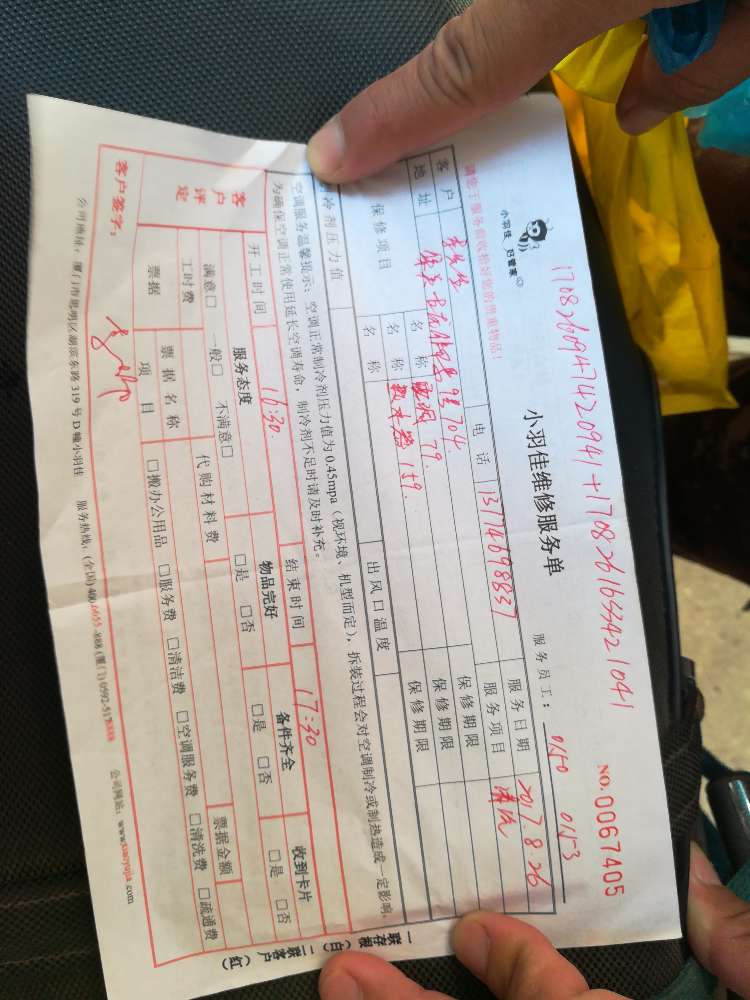 小羽佳 好管家
1708260947420941+1708261653421041
小羽佳维修服务单
NO.0067405
服务员工: 0150 0153
请您于服务前收拾好您的贵重物品!
客户 李先生 电话 13774698837 服务日期 2017.8.26
地址 704 服务项目 清洗
保修项目 名称 79. 保修期限
名称 热水器 159. 保修期限
名称 保修期限
制冷剂压力值 出风口温度
空调服务温馨提示:空调正常制冷剂压力值为0.45mpa(视环境、机型而定),拆装过程会对空调制冷或制热造成一定影响,
为确保空调正常使用延长空调寿命,制冷剂不足时请及时补充。
开工时间 16:30. 结束时间 17:30
客户评定 服务态度 物品完好 备件齐全 收到卡片
满意□ 一般□ 不满意□ □是 □否 □是 □否 □是 □否
工时费 代购材料费 票据金额
票据 票据名称
项目 □搬办公用品 □服务费 □清洁费 □空调服务费 □清洗费 □疏通费
客户签字:
公司地址:厦门市思明区湖滨东路319号D幢小羽佳 服务热线:(全国)400 6655-888 (厦门)0592-5178888 公司网站:www.xiaoyujia.com
一联存根(白)二联客户(红)